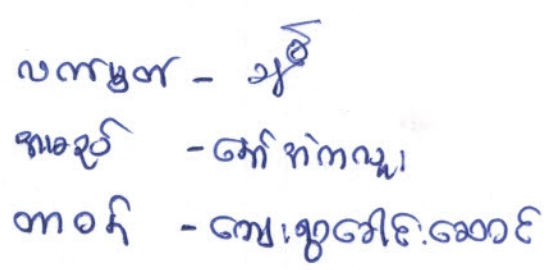 လက်မှတ် -
အမည် - စော်ဘဲကလူး
တာဝန် - ကျေးရွာခေါင်းဆောင်